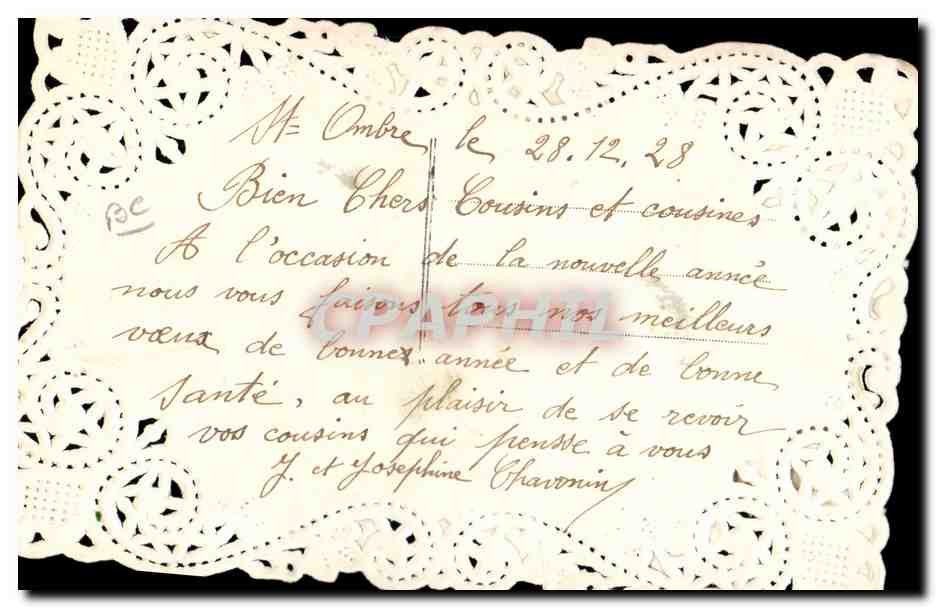 St= Ombre, le 28.12.28
Bien Chers Cousins et cousines
BC
A l'occasion de la nouvelle année
nous vous faisons tous nos meilleurs
CPAPHIL
vœux de bonnes année et de bonne
santé, au plaisir de se revoir
vos cousins qui pensse à vous
J. et Josephine Chavonin